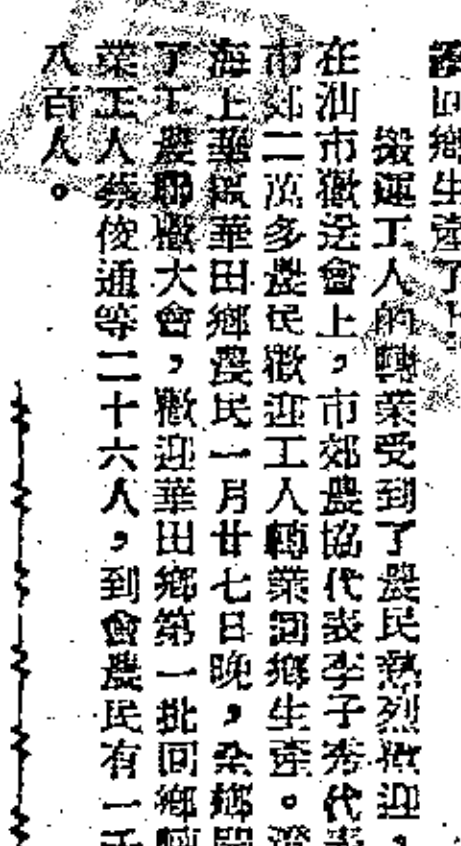 回鄉生產了。
搬運工人的轉業受到了農民熱烈歡迎，
在汕市歡送會上，市郊農協代表李子秀代表
市郊二萬多農民歡迎工人轉業回鄉生產。澄
海上華區華田鄉農民一月廿七日晚，全鄉開
了工農聯歡大會，歡迎華田鄉第一批回鄉轉
業工人蔡俊通等二十六人，到會農民有一千
八百人。